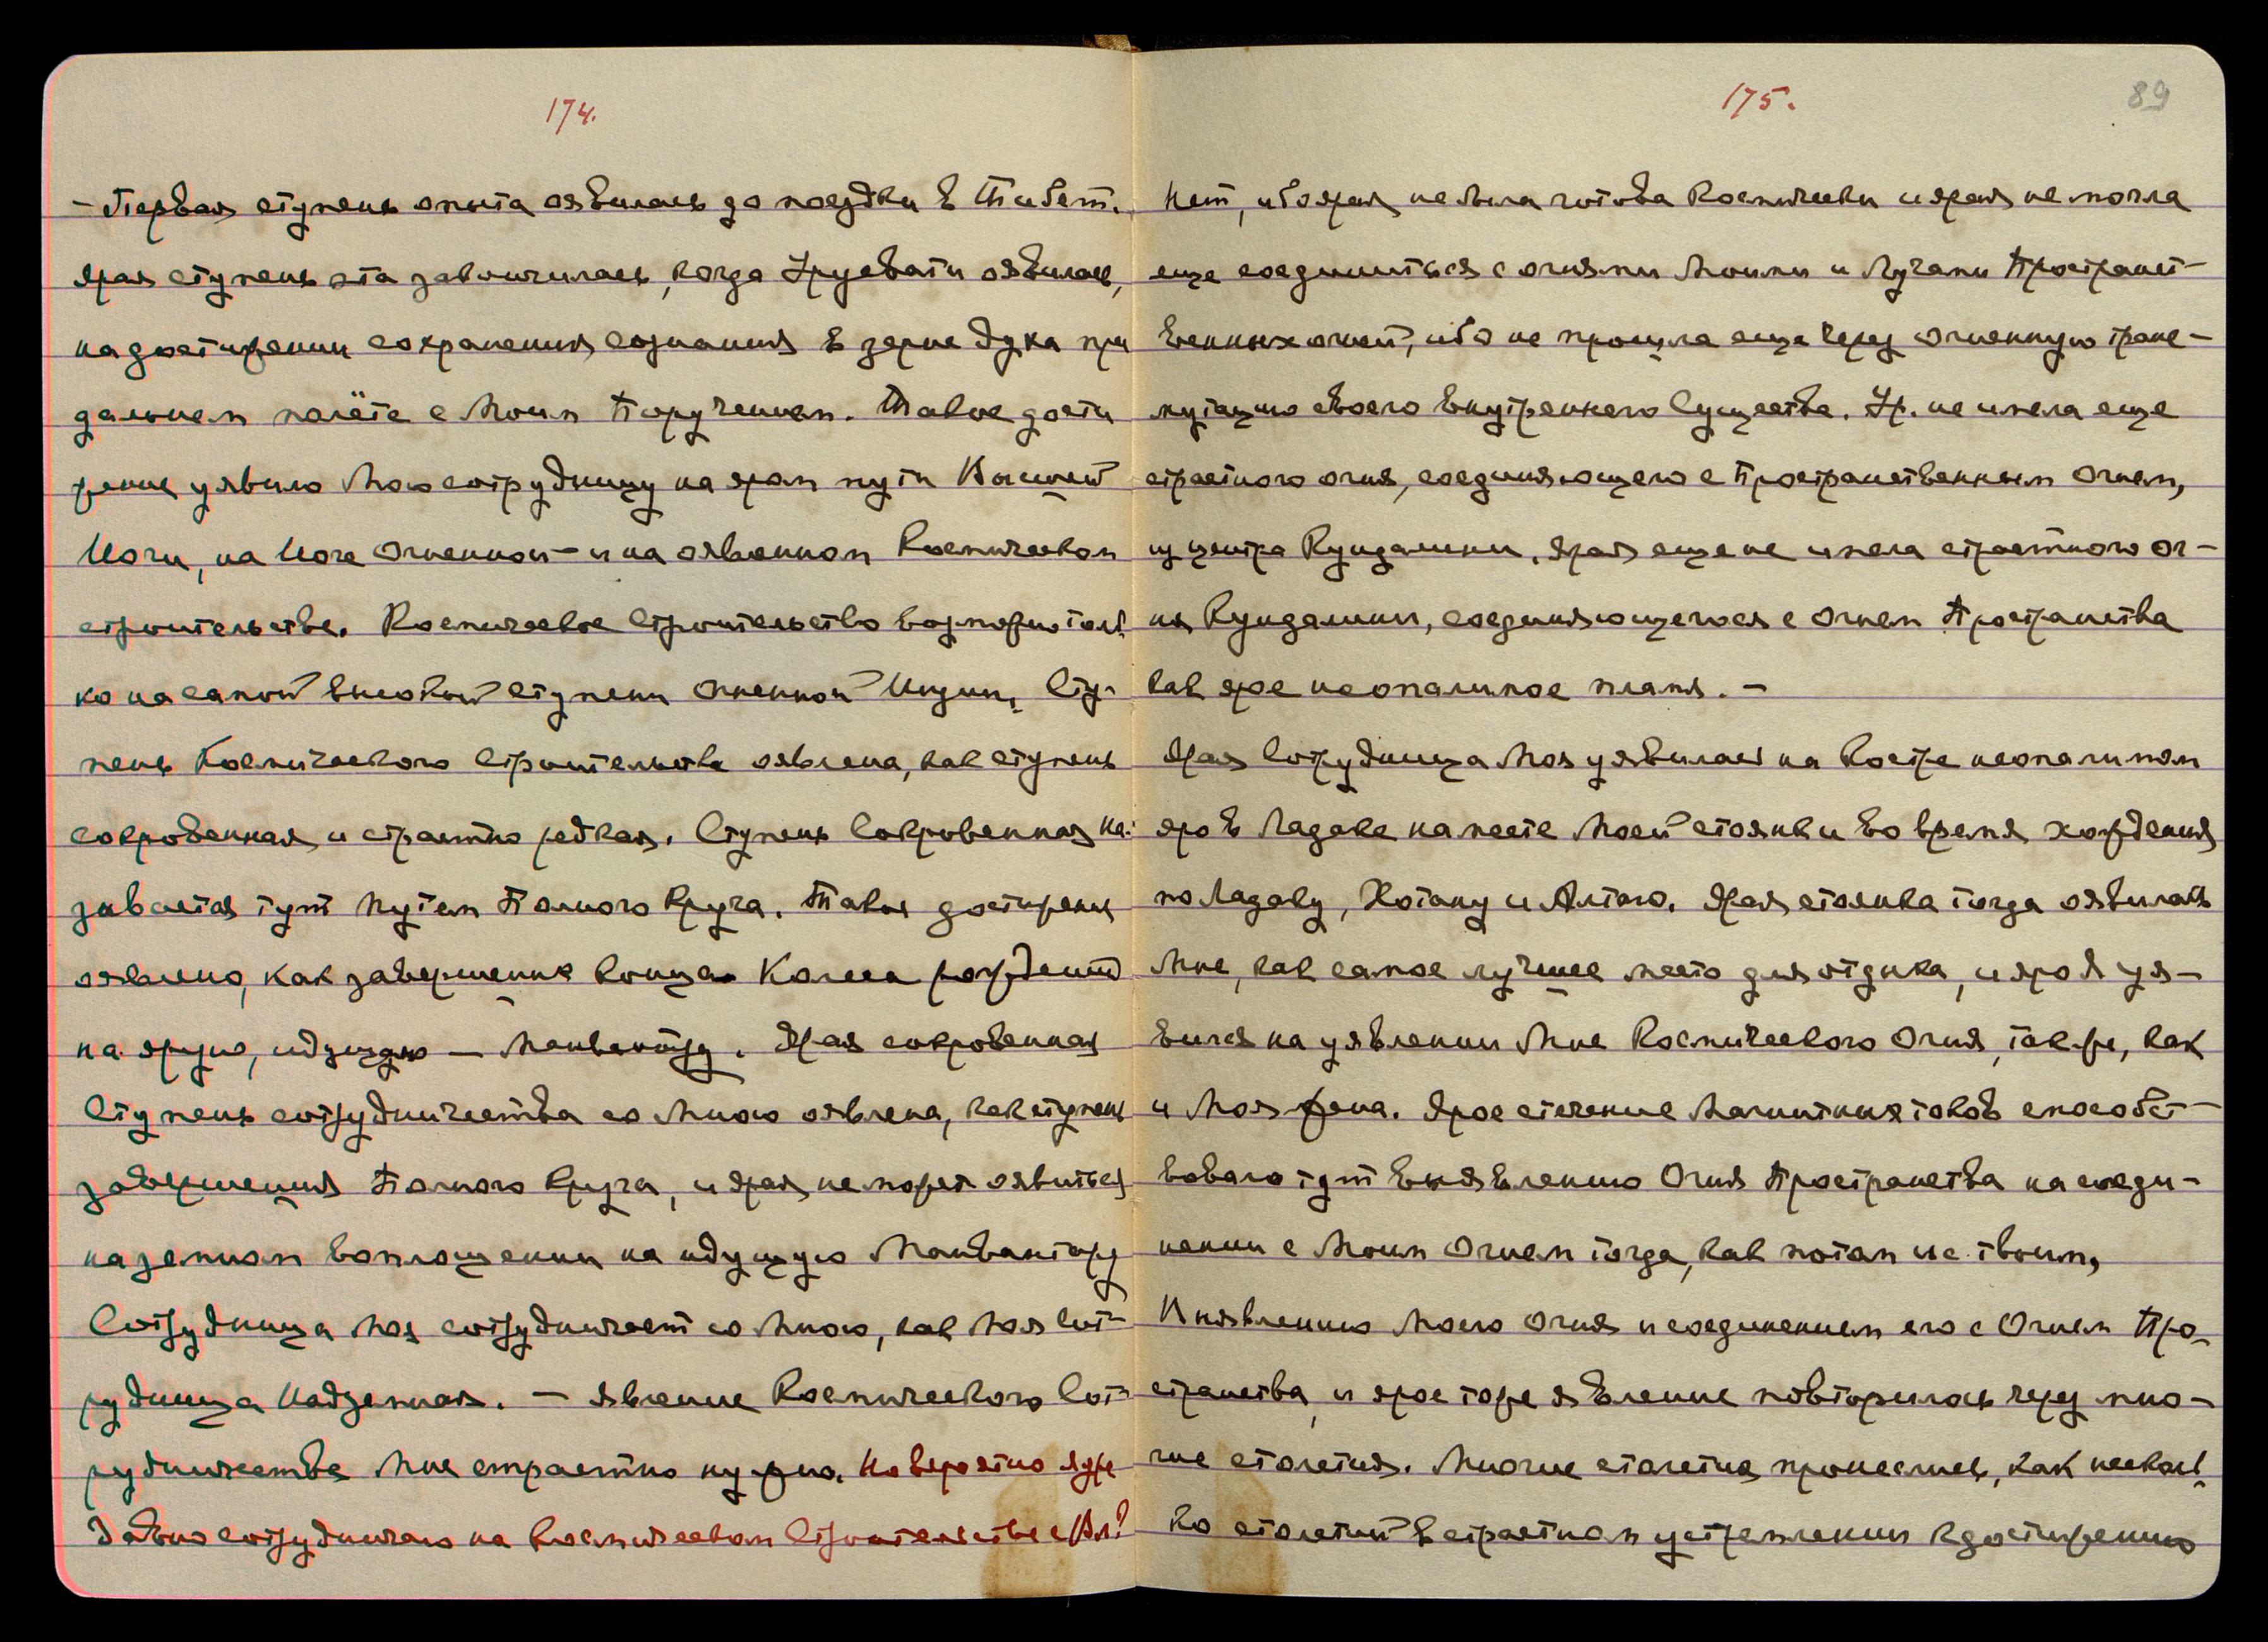 174.
- Первая ступень опыта оявилась до поездки в Тибет.
Ярая ступень эта закончилась, когда Урусвати оявилась,
на достижении сохранения сознания в зерне духа при
дальнем полёте с Моим Поручением. Такое дости
жение уявило Мою сотрудницу на яром пути Высшей
Йоги, на Йоге Огненной - и на оявленном Космическом
строительстве. Космическое Строительство возможно толь
ко на самой высокой ступени Огненной Йогии. Сту-
пень Космического Строительства оявлена, как ступень
сокровенная и страстно редкая. Ступень Сокровенная на-
зывается тут Путем Полного Круга. Такое достижение
оявлено, как завершение конца Колеса рождений
на ярую, идущую — Манвантару. Ярая сокровенная
Ступень сотрудничества со Мною оявлена, как ступень
завершения Полного Круга, и ярая не может оявиться
на земном воплощении на идущую Манвантару
Сотрудница Моя сотрудничает со Мною, как Моя Сот-
рудница Надземная. - Явление Космического Сот-
рудничества Мне страстно нужно. Но вероятно я уже
давно сотрудничаю на Космическом Строительстве с Вл?
175.
89
Нет, ибо ярая не была готова Космически и ярая не могла
еще соединиться с огнями Моими и Лучами Пространст-
венных огней, ибо не прошла еще через огненную транс-
мутацию своего внутреннего Существа. Ур. не имела еще
страстного огня, соединяющего с Пространственным Огнем,
из центра Кундалини. Ярая еще не имела страстного ог-
ня Кундалини, соединяющегося с Огнем Пространства
как ярое неопалимое пламя. -
Ярая Сотрудница Моя уявилась на Костре неопалимом
яро в Ладаке на месте Моей стоянки во время хождения
по Ладаку, Хотану и Алтаю. Ярая стоянка тогда оявилась
Мне, как самое лучшее место для отдыха, и яро Я уя-
вился на уявлении Мне Космического Огня, так же, как
и Моя жена. Ярое стечение Магнитных токов способст-
вовало тут выявлению Огня Пространства на соеди-
нении с Моим Огнем тогда, как потом и с твоим,
Изявлению Моего Огня и соединением его с Огнем Про-
странства, и ярое тоже явление повторилось через мно-
гие столетия. Многие столетия пронеслись, как несколь
ко столетий в страстном устремлении к достижению